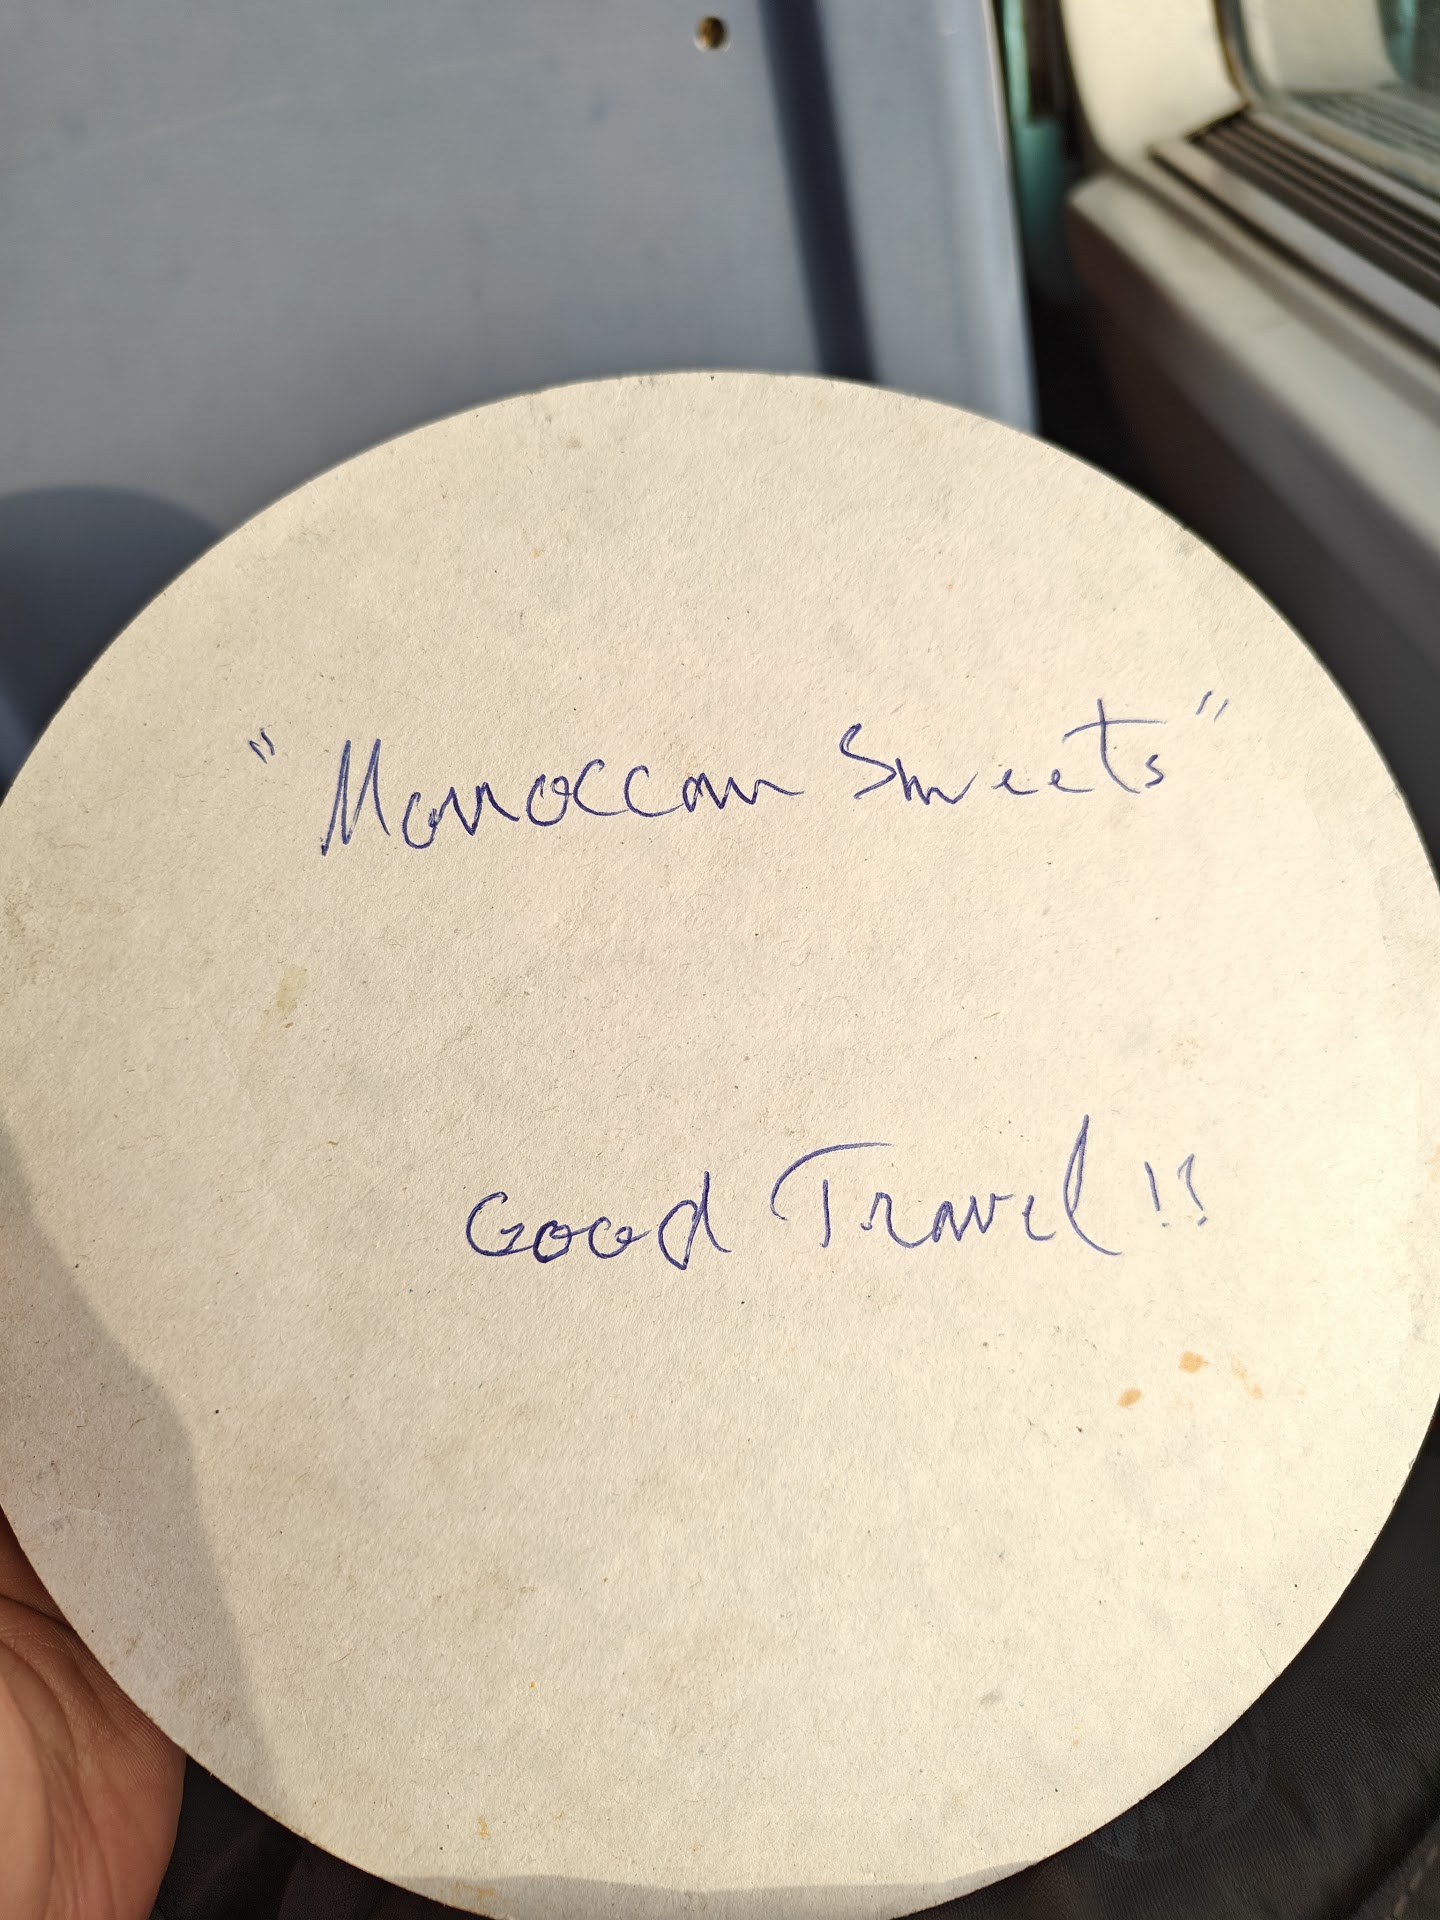 "Moroccan Sweets"
Good Travel !!